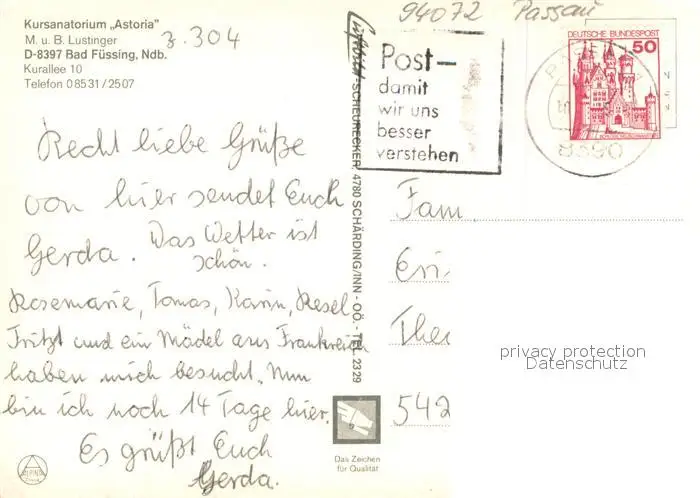 Kursanatorium „Astoria"
M. u. B. Lustinger
D-8397 Bad Füssing, Ndb.
Kurallee 10
Telefon 08531/2507
z. 304
Recht liebe Grüße
von hier sendet Euch
Gerda. Das Wetter ist
schön.
Rosemarie, Tomas, Karin, Resel
Fritzl und ein Mädel aus Frankreich
haben mich besucht. Nun
bin ich noch 14 Tage hier.
Es grüßt Euch
Gerda.
SCHEURECKER, 4780 SCHÄRDING/INN - OÖ. - TEL. 2329
94072 Passau
Post-
damit
wir uns
besser
verstehen
DEUTSCHE BUNDESPOST
50
8390
Fam
Eri
The
542
privacy protection
Datenschutz
Das Zeichen
für Qualität